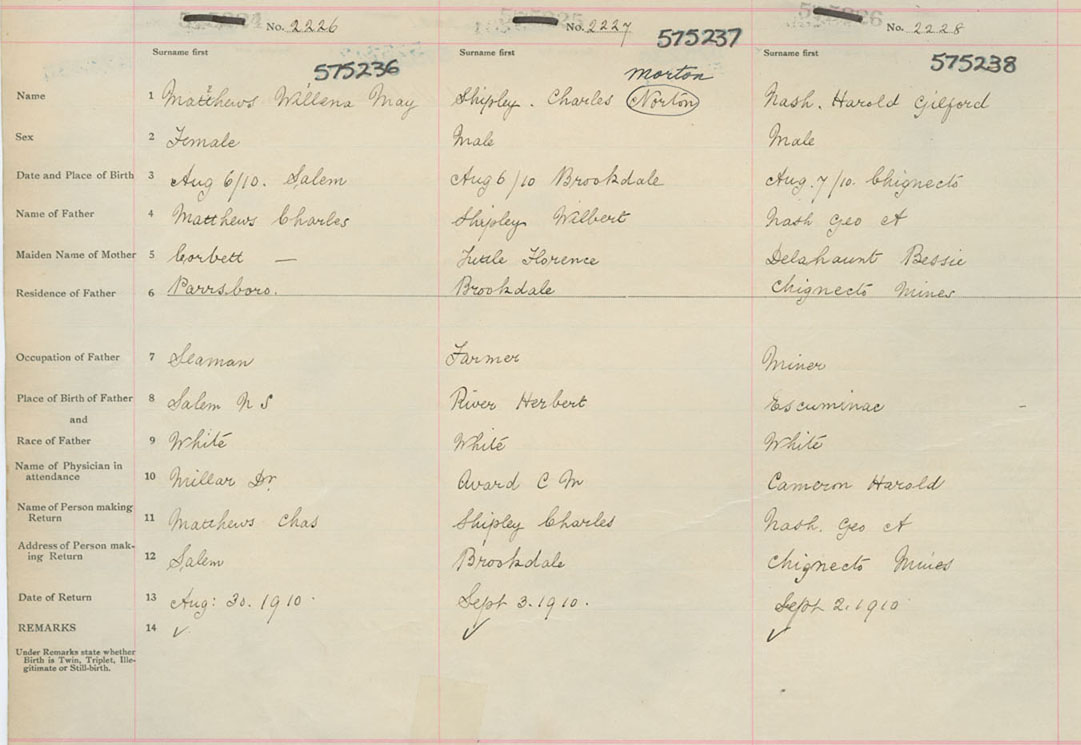 No. 2226 No. 2227 No. 2228
Surname first Surname first Surname first
575236 575237 575238
Morton
Name 1 Matthews Willena May Shipley. Charles Norton Nash. Harold Gilford
Sex 2 Female Male Male
Date and Place of Birth 3 Aug 6/10. Salem Aug 6/10 Brookdale Aug. 7/10. Chignecto
Name of Father 4 Matthews Charles Shipley Wilbert Nash Geo A
Maiden Name of Mother 5 Corbett — Tuttle Florence Delahaunt Bessie
Residence of Father 6 Parrsboro. Brookdale Chignecto Mines
Occupation of Father 7 Seaman Farmer Miner
Place of Birth of Father 8 Salem N S River Herbert Escuminac
and
Race of Father 9 White White White
Name of Physician in
attendance 10 Millar Dr. Avard C M Cameron Harold
Name of Person making
Return 11 Matthews Chas Shipley Charles Nash. Geo A
Address of Person mak-
ing Return 12 Salem Brookdale Chignecto Mines
Date of Return 13 Aug: 30. 1910. Sept 3. 1910. Sept 2. 1910
REMARKS 14 ✓ ✓ ✓
Under Remarks state whether
Birth is Twin, Triplet, Ille-
gitimate or Still-birth.